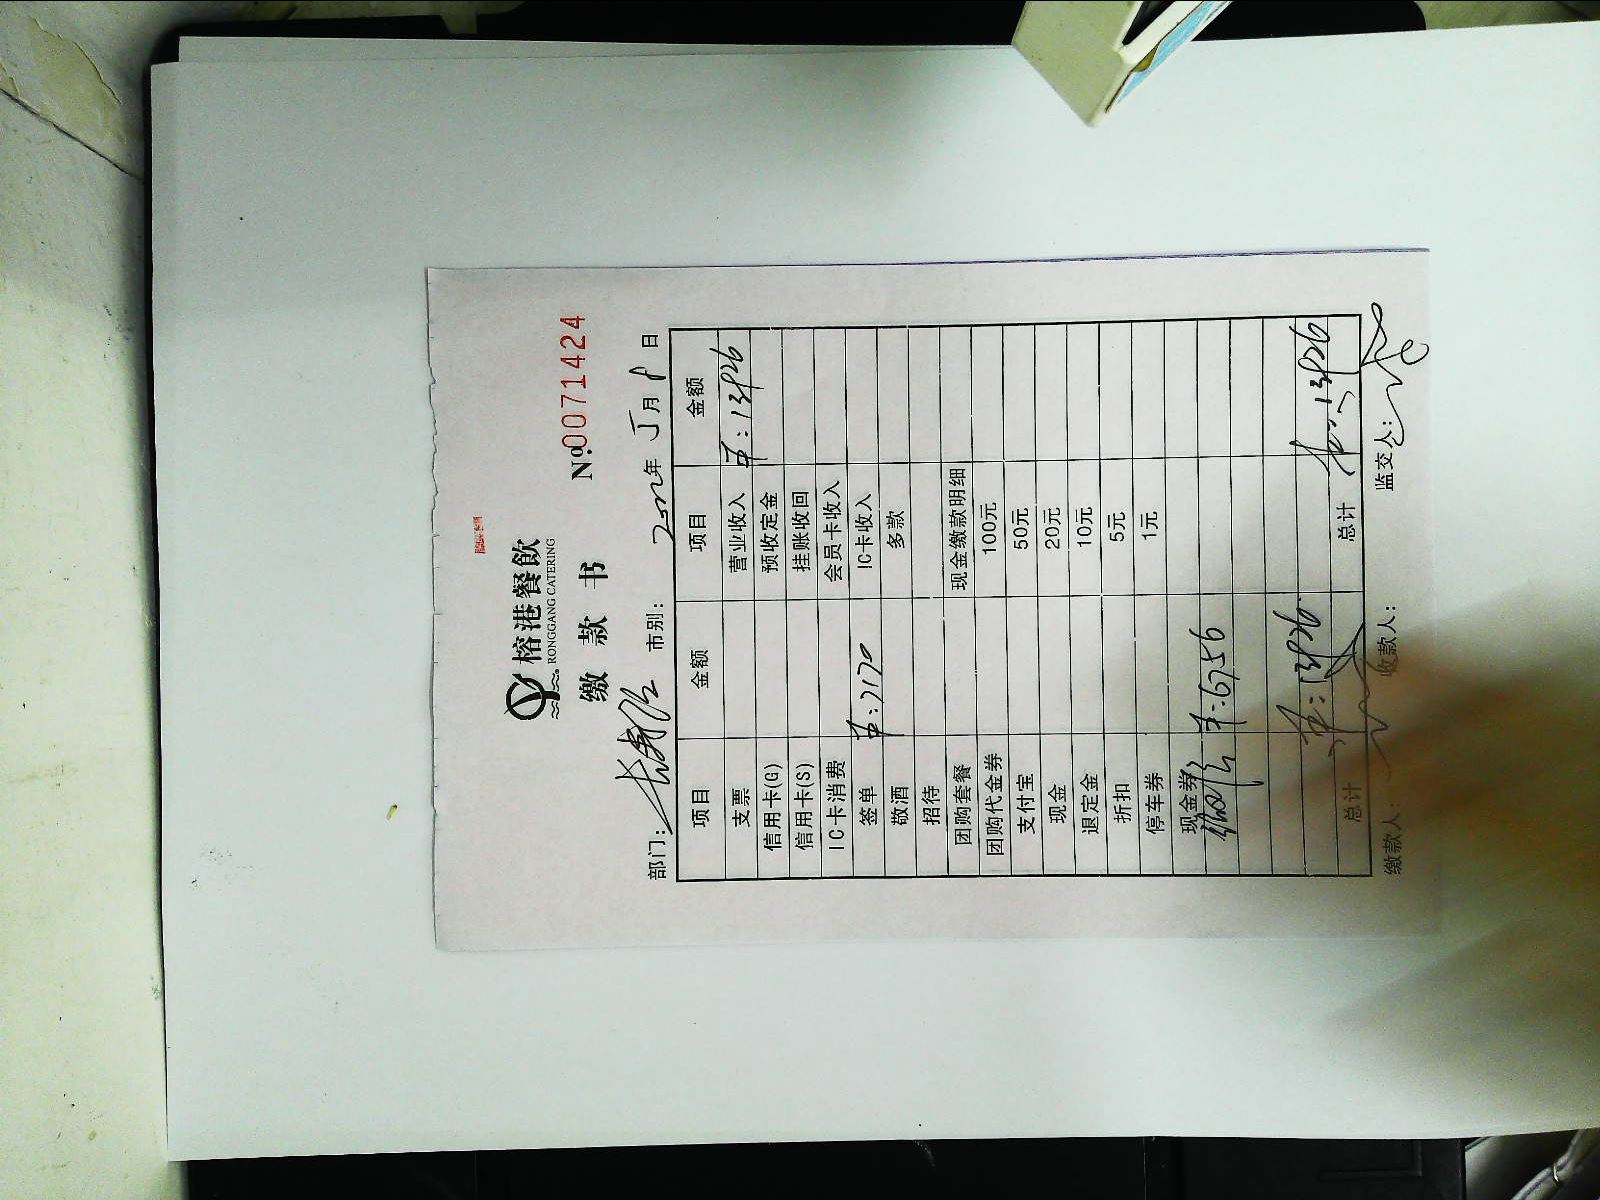 榕港餐飲
RONGGANG CATERING
缴 款 书
№.0071424
部门: 市别: 2022年 5月 8日
项目 金额 项目 金额
支票 营业收入
信用卡(G) 预收定金
信用卡(S) 挂账收回
IC卡消费 会员卡收入
签单 IC卡收入
敬酒 多款
招待
团购套餐 现金缴款明细
团购代金券 100元
支付宝 50元
现金 20元
退定金 10元
折扣 5元
停车券 1元
现金券
6756
总计 总计
缴款人: 收款人: 监交人: